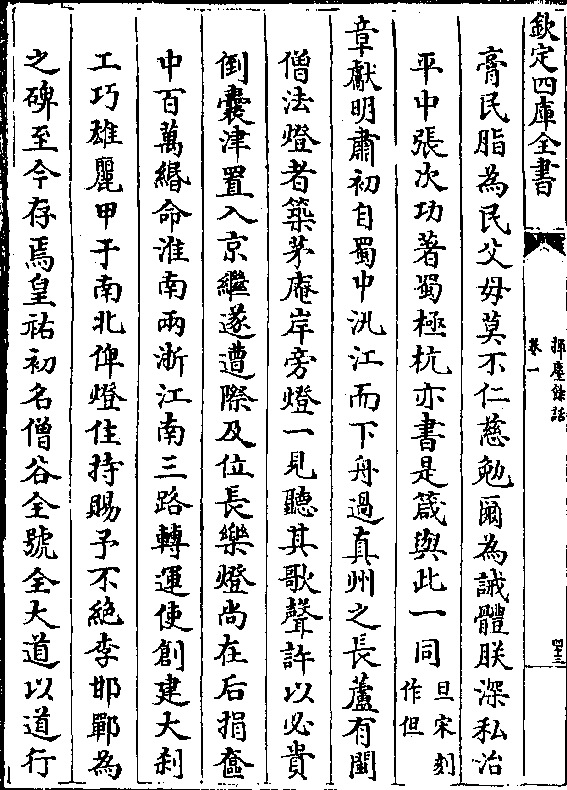 欽定四庫全書
揮麈餘話
卷一
四三
膏民脂為民父母莫不仁慈勉爾為誡體朕深私治
平中張次功著蜀檮杌亦書是箴與此一同旦宋刻作但
章獻明肅初自蜀中汎江而下舟過真州之長蘆有閩
僧法燈者築茅庵岸旁燈一見聽其歌聲許以必貴
倒囊津置入京繼遂遭際及位長樂燈尚在后捐奩
中百萬緡命淮南兩浙江南三路轉運使創建大刹
工巧雄麗甲于南北俾燈住持賜予不絕李邯鄲為
之碑至今存焉皇祐初名僧谷全號全大道以道行